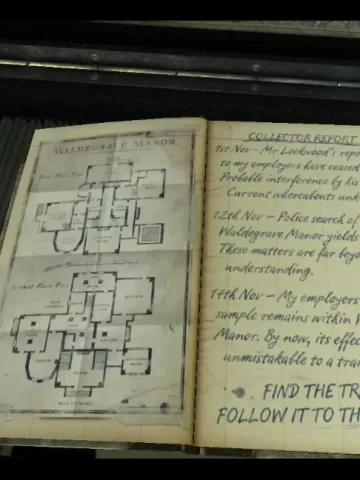 WALDEGRAVE MANOR
FIRST FLOOR PLAN
GROUND FLOOR PLAN
MAIN ENTRANCE
COLLECTOR REPORT
1st Nov - Mr Lockwood's repo
to my employers have ceased
Probable interference by his
Current whereabouts unk
12th Nov - Police search of
Waldegrave Manor yields
These matters are far beyo
understanding.
14th Nov - My employers
sample remains within W
Manor. By now, its effec
unmistakable to a tra
FIND THE TR
FOLLOW IT TO TH